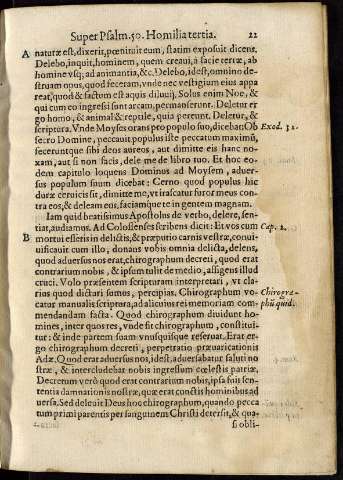 Super Psalm. 50. Homilia tertia. 22
A naturæ est, dixerit, pœnituit eum, statim exposuit dicens.
Delebo, inquit, hominem, quem creaui, à facie terræ, ab
homine vsq; ad animantia, &c. Delebo, idest, omnino de-
struam opus, quod feceram, vnde nec vestigium eius appa
reat, quod & factum est aquis diluuij. Solus enim Noe, &
qui cum eo ingressi sunt arcam, permanserunt. Deletur er
go homo, & animal & reptile, quia pereunt. Deletur, &
scriptura. Vnde Moyses orans pro populo suo, dicebat: Ob Exod. 32.
secro Domine, peccauit populus iste peccatum maximū,
feceruntque sibi deos aureos, aut dimitte eis hanc no-
xam, aut si non facis, dele me de libro tuo. Et hoc eo-
dem capitulo loquens Dominus ad Moysem, aduer-
sus populum suum dicebat: Cerno quod populus hic
duræ ceruicis sit, dimitte me, vt irascatur furor meus con-
tra eos, & deleam eos, faciamque te in gentem magnam.
Iam quid beatissimus Apostolus de verbo, delere, sen-
tiat, audiamus. Ad Colossenses scribens dicit: Et vos cum Cap. 2.
B mortui essetis in delictis, & præputio carnis vestræ, conui-
uificauit cum illo, donans vobis omnia delicta, delens,
quod aduersus nos erat, chirographum decreti, quod erat
contrarium nobis, & ipsum tulit de medio, affigens illud
cruci. Volo præsentem scripturam interpretari, vt cla-
rius quod dictari sumus, percipias. Chirographum vo- Chirogra-
catur manualis scriptura, ad alicuius rei memoriam com- phū quid.
mendandam facta. Quod chirographum diuidunt ho-
mines, inter quos res, vnde sit chirographum, constitui-
tur: & inde partem suam vnusquisque reseruat. Erat er-
go chirographum decreti, perpetratio præuaricationis
Adæ. Quod erat aduersus nos, idest, aduersabatur saluti no
stræ, & intercludebat nobis ingressum cœlestis patriæ.
Decretum verò quod erat contrarium nobis, ipsa fuit sen-
tentia damnationis nostræ, quæ erat cunctis hominibus ad
uersa. Sed deleuit Deus hoc chirographum, quando pecca
tum primi parentis per sanguinem Christi detersit, & qua-
si obli-